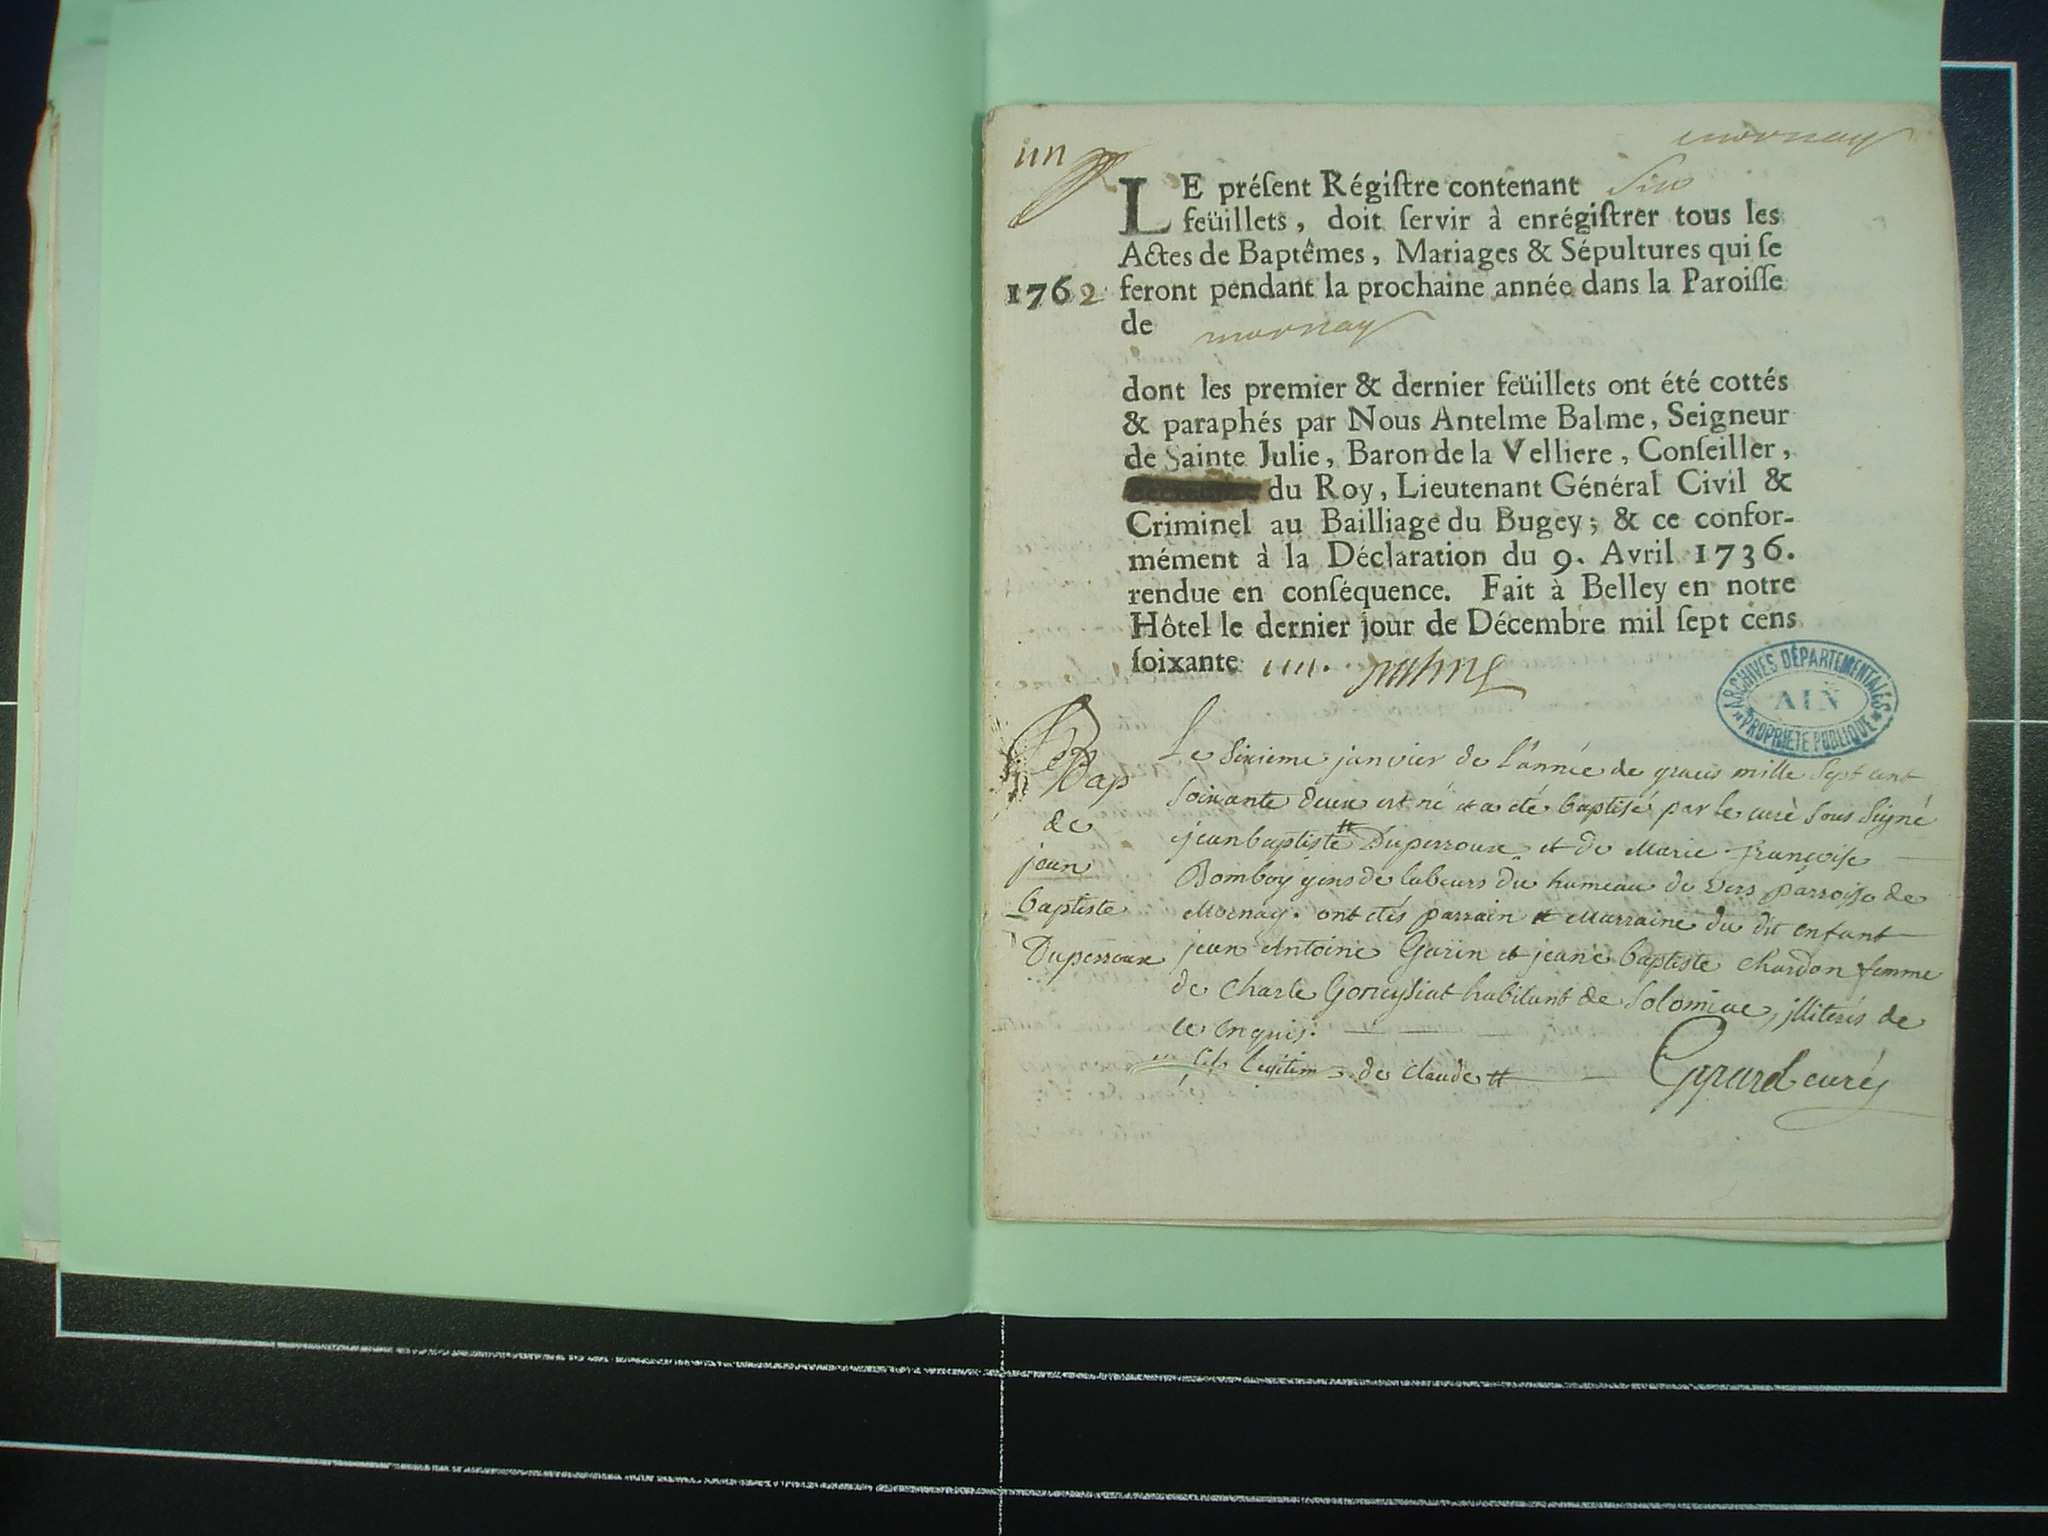 un
mornay
LE préſent Régiſtre contenant Six
feüillets, doit ſervir à enrégiſtrer tous les
Actes de Baptêmes, Mariages & Sépultures qui ſe
1762 feront pendant la prochaine année dans la Paroiſſe
de mornay
dont les premier & dernier feüillets ont été cottés
& paraphés par Nous Antelme Balme, Seigneur
de Sainte Julie, Baron de la Velliere, Conſeiller,
du Roy, Lieutenant Général Civil &
Criminel au Bailliage du Bugey; & ce confor-
mément à la Déclaration du 9. Avril 1736.
rendue en conſéquence. Fait à Belley en notre
Hôtel le dernier jour de Décembre mil ſept cens
ſoixante un. Balme
ARCHIVES DÉPARTEMENTALES
AIN
PROPRIÉTÉ PUBLIQUE
Bap
de
jean
baptiste
Duperroux
Le Sixieme janvier de l'année de grace mille Sept cent
Soixante deux est né et a été baptisé par le curé Sous Signé
jean baptiste # Duperroux et de Marie françoise
Bomboy gens de labeurs du hameau de Vers parroisse de
Mornay. ont étés parrain et Marraine du dit enfant
jean Antoine Garin et jeane baptiste Chardon femme
de Charle Goneysiat habitant de Solomiac, illiterés de
ce enquis.
fils legitime de claude #
Gyrard curé